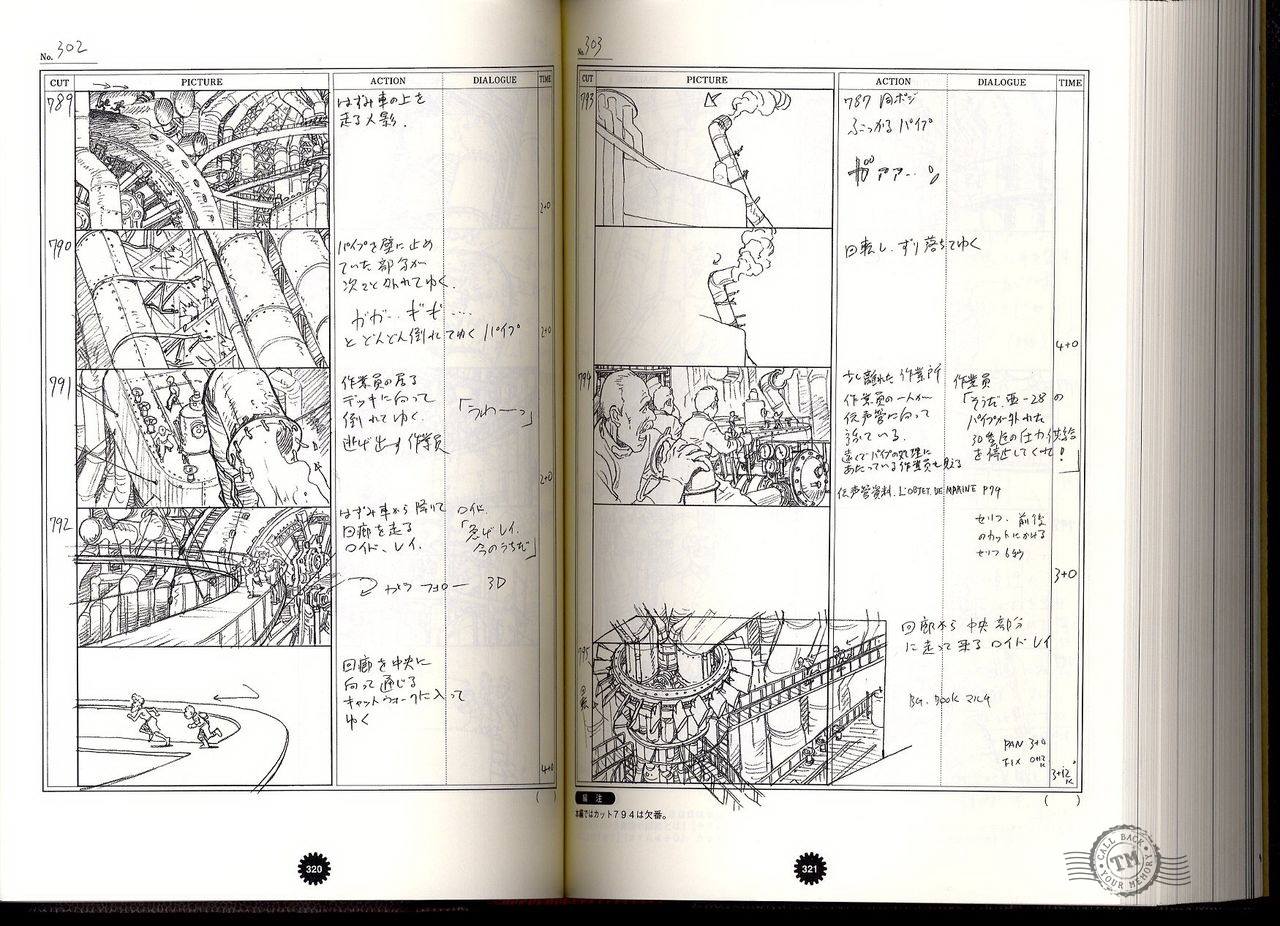 No. 302
CUT PICTURE ACTION DIALOGUE TIME
789
はずみ車の上を
走る人影.
2+0
790
パイプを壁に止め
ていた部分が
次々と外れてゆく.
ガガ‥ギギ‥‥
とどんどん倒れてゆくパイプ
2+0
791
作業員の居る
デッキに向って
倒れてゆく.
逃げ出す作業員
「うわーっ」
2+0
792
はずみ車から降りて
回廊を走る
ロイド、レイ.
ロイド
「急げレイ.
今のうちだ」
フォロー 3D
回廊を中央に
向って通じる
キャットウォークに入って
ゆく
4+0
( )
320
No. 303
CUT PICTURE ACTION DIALOGUE TIME
793
787 同ポジ
ぶつかるパイプ
ガァァ‥
回転し、ずり落ちてゆく
4+0
794
少し離れた作業所
作業員の一人が
伝声管に向って
遠くでパイプの処理に
あたっている作業員も見える
伝声管資料. L'OBJET DE MARINE P74
作業員
「そうだ、亜-28の
パイプが外れた
の圧力供給
を停止してくれ!」
セリフ. 前後
のカットにかける
セリフ 6秒
3+0
795
回廊から中央部分
に走って来るロイドレイ
BG. BOOK マルチ
PAN 3+0
FIX 0+12K
3+12K
( )
編 注
本編ではカット794は欠番。
321
CALL BACK
TM
YOUR MEMORY